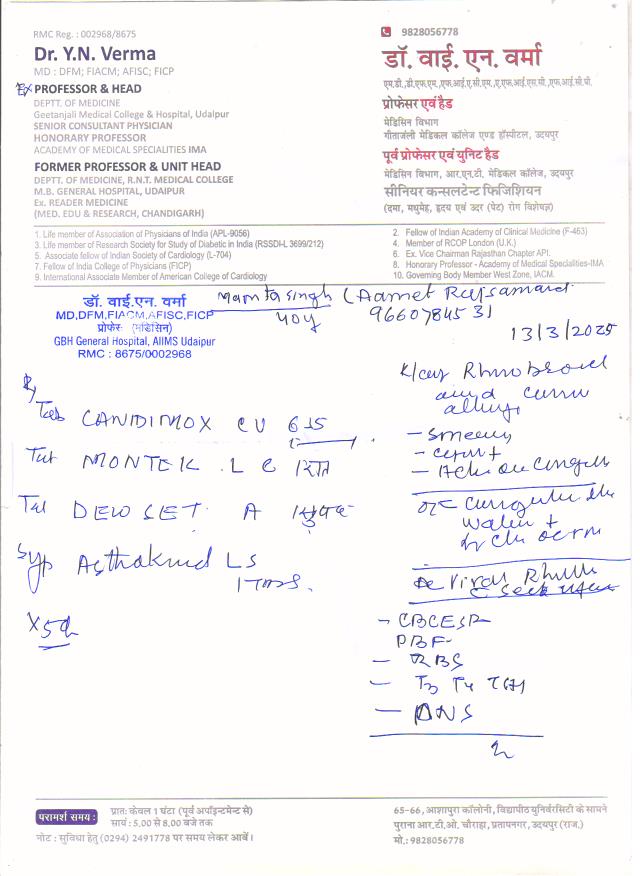 RMC Reg. : 002968/8675
Dr. Y.N. Verma
MD : DFM; FIACM; AFISC; FICP
Ex PROFESSOR & HEAD
DEPTT. OF MEDICINE
Geetanjali Medical College & Hospital, Udaipur
SENIOR CONSULTANT PHYSICIAN
HONORARY PROFESSOR
ACADEMY OF MEDICAL SPECIALITIES IMA
FORMER PROFESSOR & UNIT HEAD
DEPTT. OF MEDICINE, R.N.T. MEDICAL COLLEGE
M.B. GENERAL HOSPITAL, UDAIPUR
Ex. READER MEDICINE
(MED. EDU & RESEARCH, CHANDIGARH)
9828056778
डॉ. वाई. एन. वर्मा
एम.डी.,डी.एफ.एम.,एफ.आई.ए.सी.एम.,ए.एफ.आई.एस.सी.,एफ.आई.सी.पी.
प्रोफेसर एवं हैड
मेडिसिन विभाग
गीतांजली मेडिकल कॉलेज एण्ड हॉस्पीटल, उदयपुर
पूर्व प्रोफेसर एवं युनिट हैड
मेडिसिन विभाग, आर.एन.टी. मेडिकल कॉलेज, उदयपुर
सीनियर कन्सलटेन्ट फिजिशियन
(दमा, मधुमेह, हृदय एवं उदर (पेट) रोग विशेषज्ञ)
1. Life member of Association of Physicians of India (APL-9056)
3. Life member of Research Society for Study of Diabetic in India (RSSDI-L 3699/212)
5. Associate fellow of Indian Society of Cardiology (L-704)
7. Fellow of India College of Physicians (FICP)
9. International Associate Member of American College of Cardiology
2. Fellow of Indian Academy of Clinical Medicine (F-463)
4. Member of RCOP London (U.K.)
6. Ex. Vice Chairman Rajasthan Chapter API.
8. Honorary Professor - Academy of Medical Specialities-IMA
10. Governing Body Member West Zone, IACM.
डॉ. वाई.एन. वर्मा
MD,DFM,FIACM,AFISC,FICP
प्रोफेसर (मेडिसिन)
GBH General Hospital, AIIMS Udaipur
RMC : 8675/0002968
Mamta Singh (Aamet Rajsamand
40y 9660784531
13/3/2025
Rx
Tab CANDIMOX CV 625
Tab MONTEK LC
Tab A
Syp Asthakind LS
1 TDS.
X5d
allergy
- CBC ESR
PBF
- RBS
- T3 T4 TSH
परामर्श समय :
प्रात: केवल 1 घंटा (पूर्व अपॉइन्टमेन्ट से)
सायं : 5.00 से 8.00 बजे तक
नोट : सुविधा हेतु (0294) 2491778 पर समय लेकर आवें।
65-66, आशापुरा कॉलोनी, विद्यापीठ युनिवरसिटी के सामने
पुराना आर.टी.ओ. चौराहा, प्रतापनगर, उदयपुर (राज.)
मो.: 9828056778